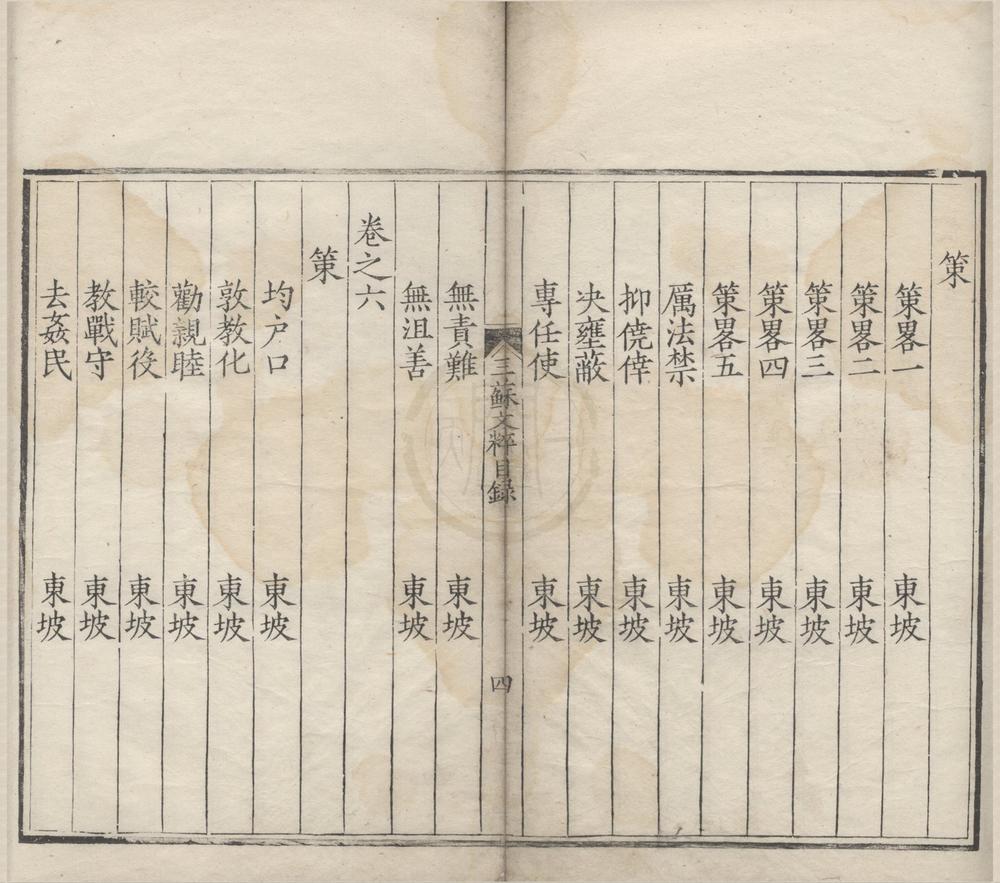 策
策畧一 東坡
策畧二 東坡
策畧三 東坡
策畧四 東坡
策畧五 東坡
厲法禁 東坡
抑僥倖 東坡
决壅蔽 東坡
專任使 東坡
三蘇文粹目録 四
無責難 東坡
無沮善 東坡
卷之六
策
均户口 東坡
敦教化 東坡
勸親睦 東坡
較賦役 東坡
教戰守 東坡
去姦民 東坡